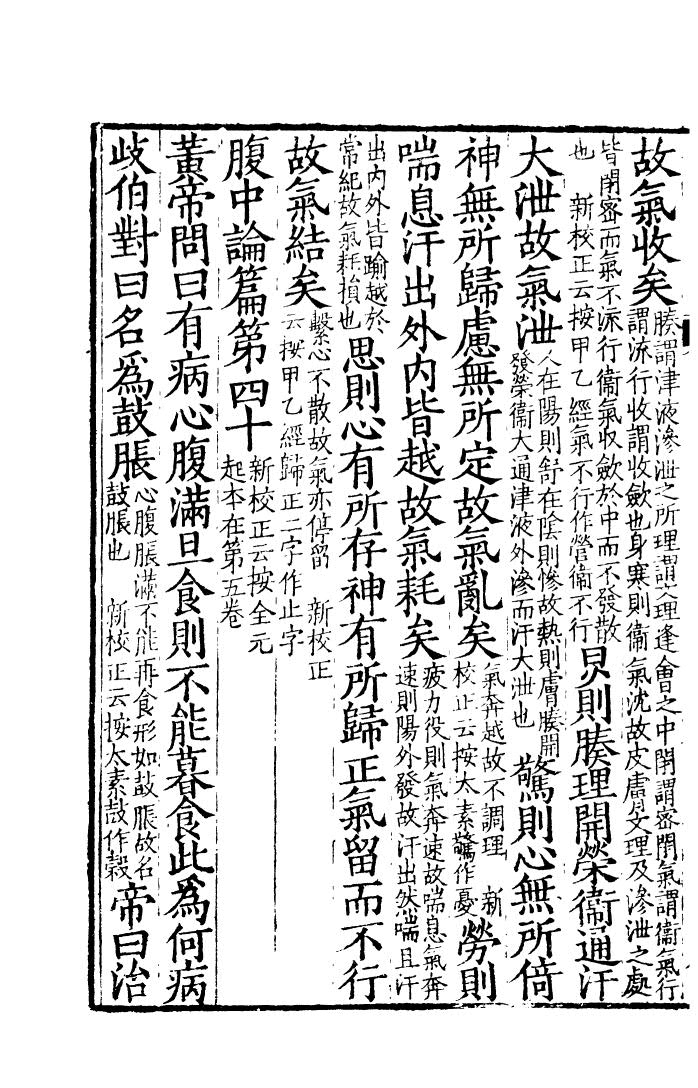 故氣收矣腠謂津液滲泄之所理謂文理逢會之中閉謂密閉氣謂衞氣行謂流行收謂收歛也身寒則衞氣沈故皮膚文理及滲泄之處
皆閉密而氣不流行衞氣收歛於中而不發散也 新校正云按甲乙經氣不行作營衞不行炅則腠理開榮衞通汗
大泄故氣泄人在陽則舒在陰則慘故熱則膚腠開發榮衞大通津液外滲而汗大泄也驚則心無所倚
神無所歸慮無所定故氣亂矣氣奔越故不調理 新校正云按太素驚作憂勞則
喘息汗出外内皆越故氣耗矣疲力役則氣奔速故喘息氣奔速則陽外發故汗出然喘且汗
出内外皆踰越於常紀故氣耗損也思則心有所存神有所歸正氣留而不行
故氣結矣繫心不散故氣亦停留 新校正云按甲乙經歸正二字作止字
腹中論篇第四十新校正云按全元起本在第五卷
黃帝問曰有病心腹滿旦食則不能暮食此爲何病
歧伯對曰名爲鼓脹心腹脹滿不能再食形如鼓脹故名鼓脹也 新校正云按太素鼓作穀帝曰治